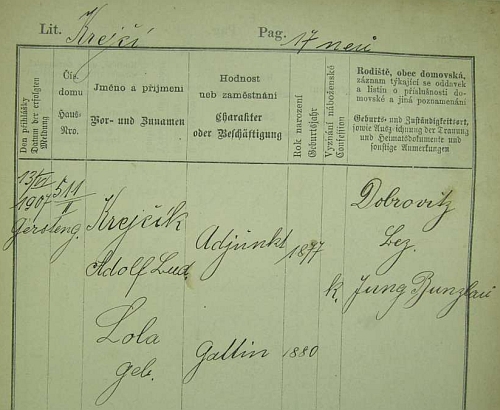 Lit. Krejčí Pag. 17 neů
Den přihlášky
Datum der erfolgten Meldung
Čís. domu
Haus-Nro.
Jméno a příjmení
Vor- und Zunamen
Hodnost
neb zaměstnání
Charakter
oder Beschäftigung
Rok narození
Geburtsjahr
Vyznání náboženské
Confession
Rodiště, obec domovská,
záznam týkající se oddavek
a listin o příslušnosti do-
movské a jiná poznamenání
Geburts- und Zuständigkeitsort,
sowie Aufzeichnung der Trauung
und Heimatsdokumente und
sonstige Anmerkungen
13/VI
1907
Gersteng.
511
II
Krejčík
Adolf Lud.
Adjunkt
1877
Dobrovitz
Bez.
k. Jung Bunzlau
Lola
geb.
Gattin
1880